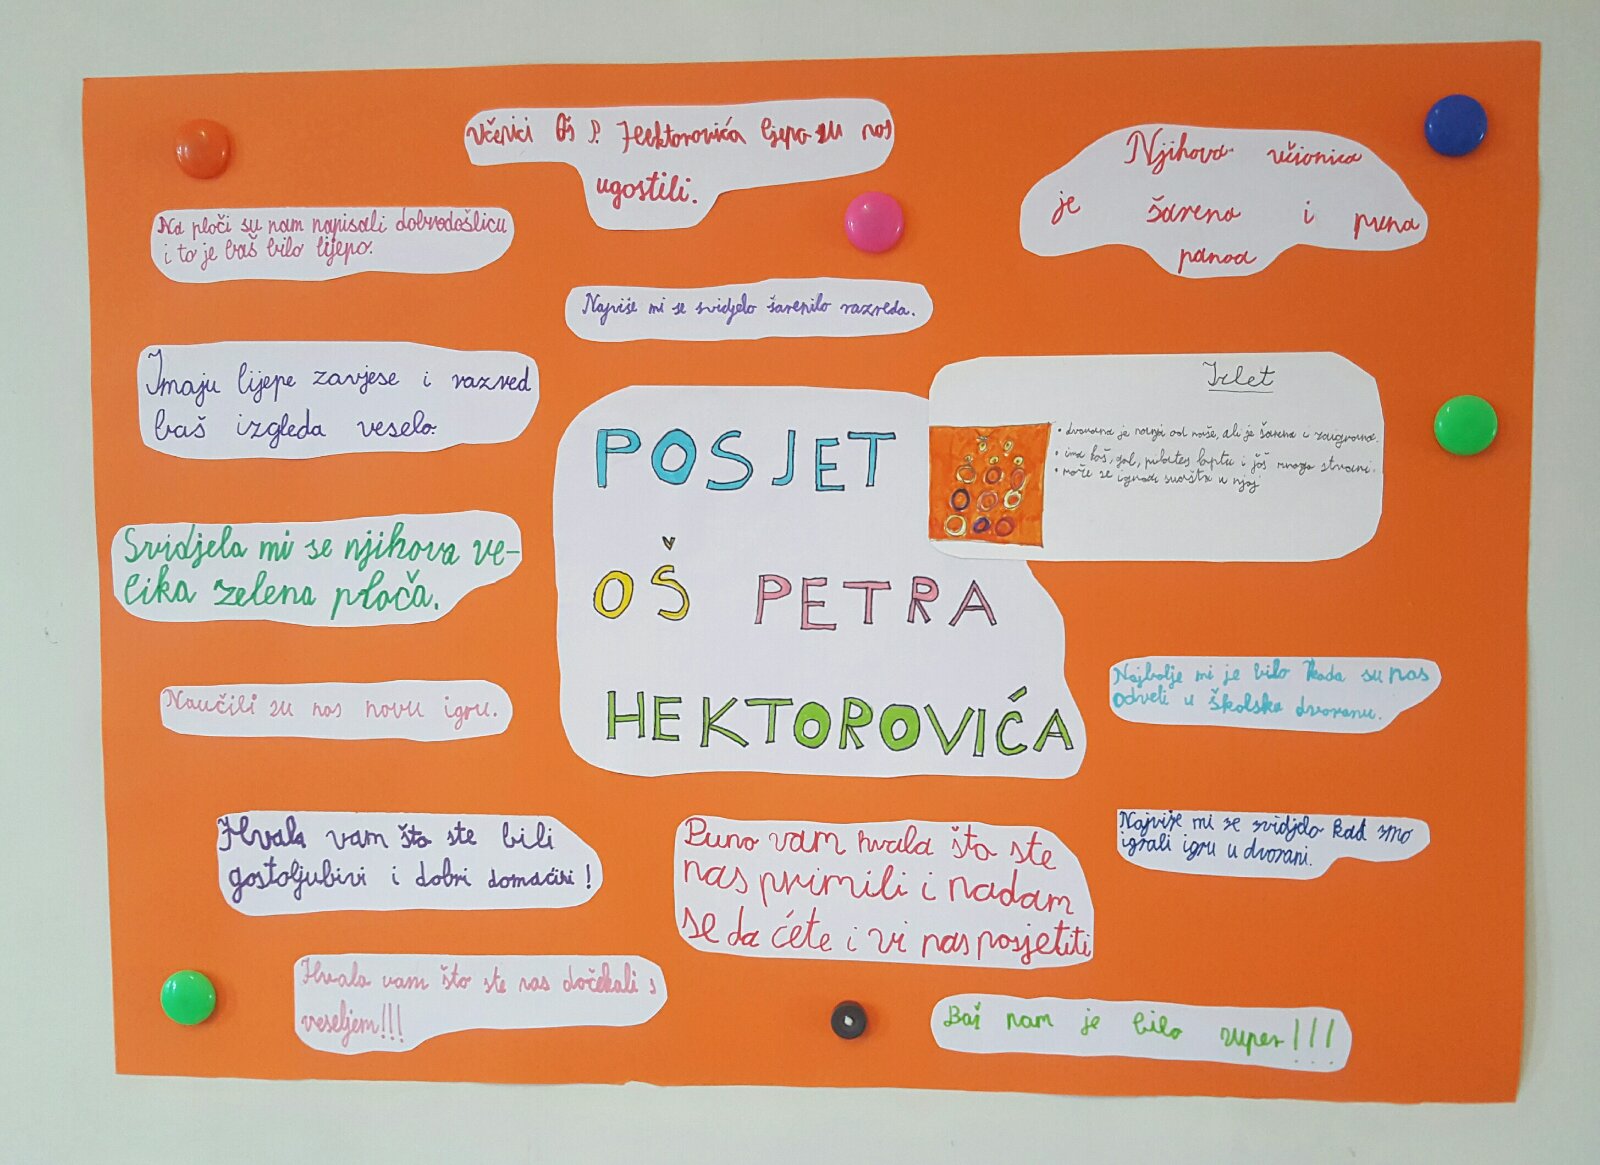 Učenici OŠ P. Hektorovića ljepo su nas
ugostili.
Njihova učionica
je šarena i puna
panoa
Na ploči su nam napisali dobrodošlicu
i to je baš bilo lijepo.
Najviše mi se svidjelo šarenilo razreda.
Imaju lijepe zavjese i razred
baš izgleda veselo.
Izlet
• dvorana je manja od naše, ali je šarena i zaigrana.
• ima koš, gol, pilates loptu i još mnogo stvari.
• može se igrati svašta u njoj
POSJET
OŠ PETRA
HEKTOROVIĆA
Svidjela mi se njihova ve-
lika zelena ploča.
Naučili su nas novu igru.
Najbolje mi je bilo kada su nas
odveli u školsku dvoranu.
Hvala vam što ste bili
gostoljubivi i dobri domaćini!
Puno vam hvala što ste
nas primili i nadam
se da ćete i vi nas posjetiti
Najviše mi se svidjelo kad smo
igrali igru u dvorani.
Hvala vam što ste nas dočekali s
veseljem!!!
Baš nam je bilo super!!!